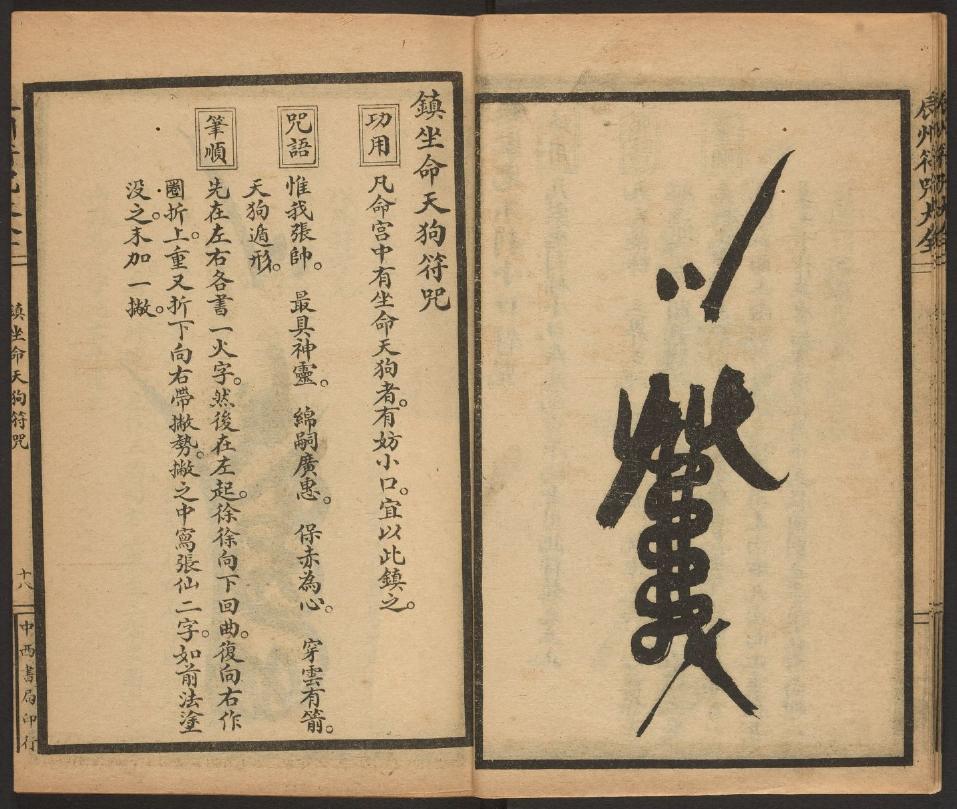 辰州符咒大全
鎮坐命天狗符咒
功用
凡命宫中有坐命天狗者。有妨小口。宜以此鎮之。
咒語
惟我張帥。 最具神靈。 綿嗣廣惠。 保赤為心。 穿雲有箭。
天狗遁形。
筆順
先在左右各書一火字。然後在左起。徐徐向下回曲。復向右作
圈折上。重又折下向右帶撇勢。撇之中寫張仙二字。如前法塗
没之。末加一撇。
鎮坐命天狗符咒
十八
中西書局印行